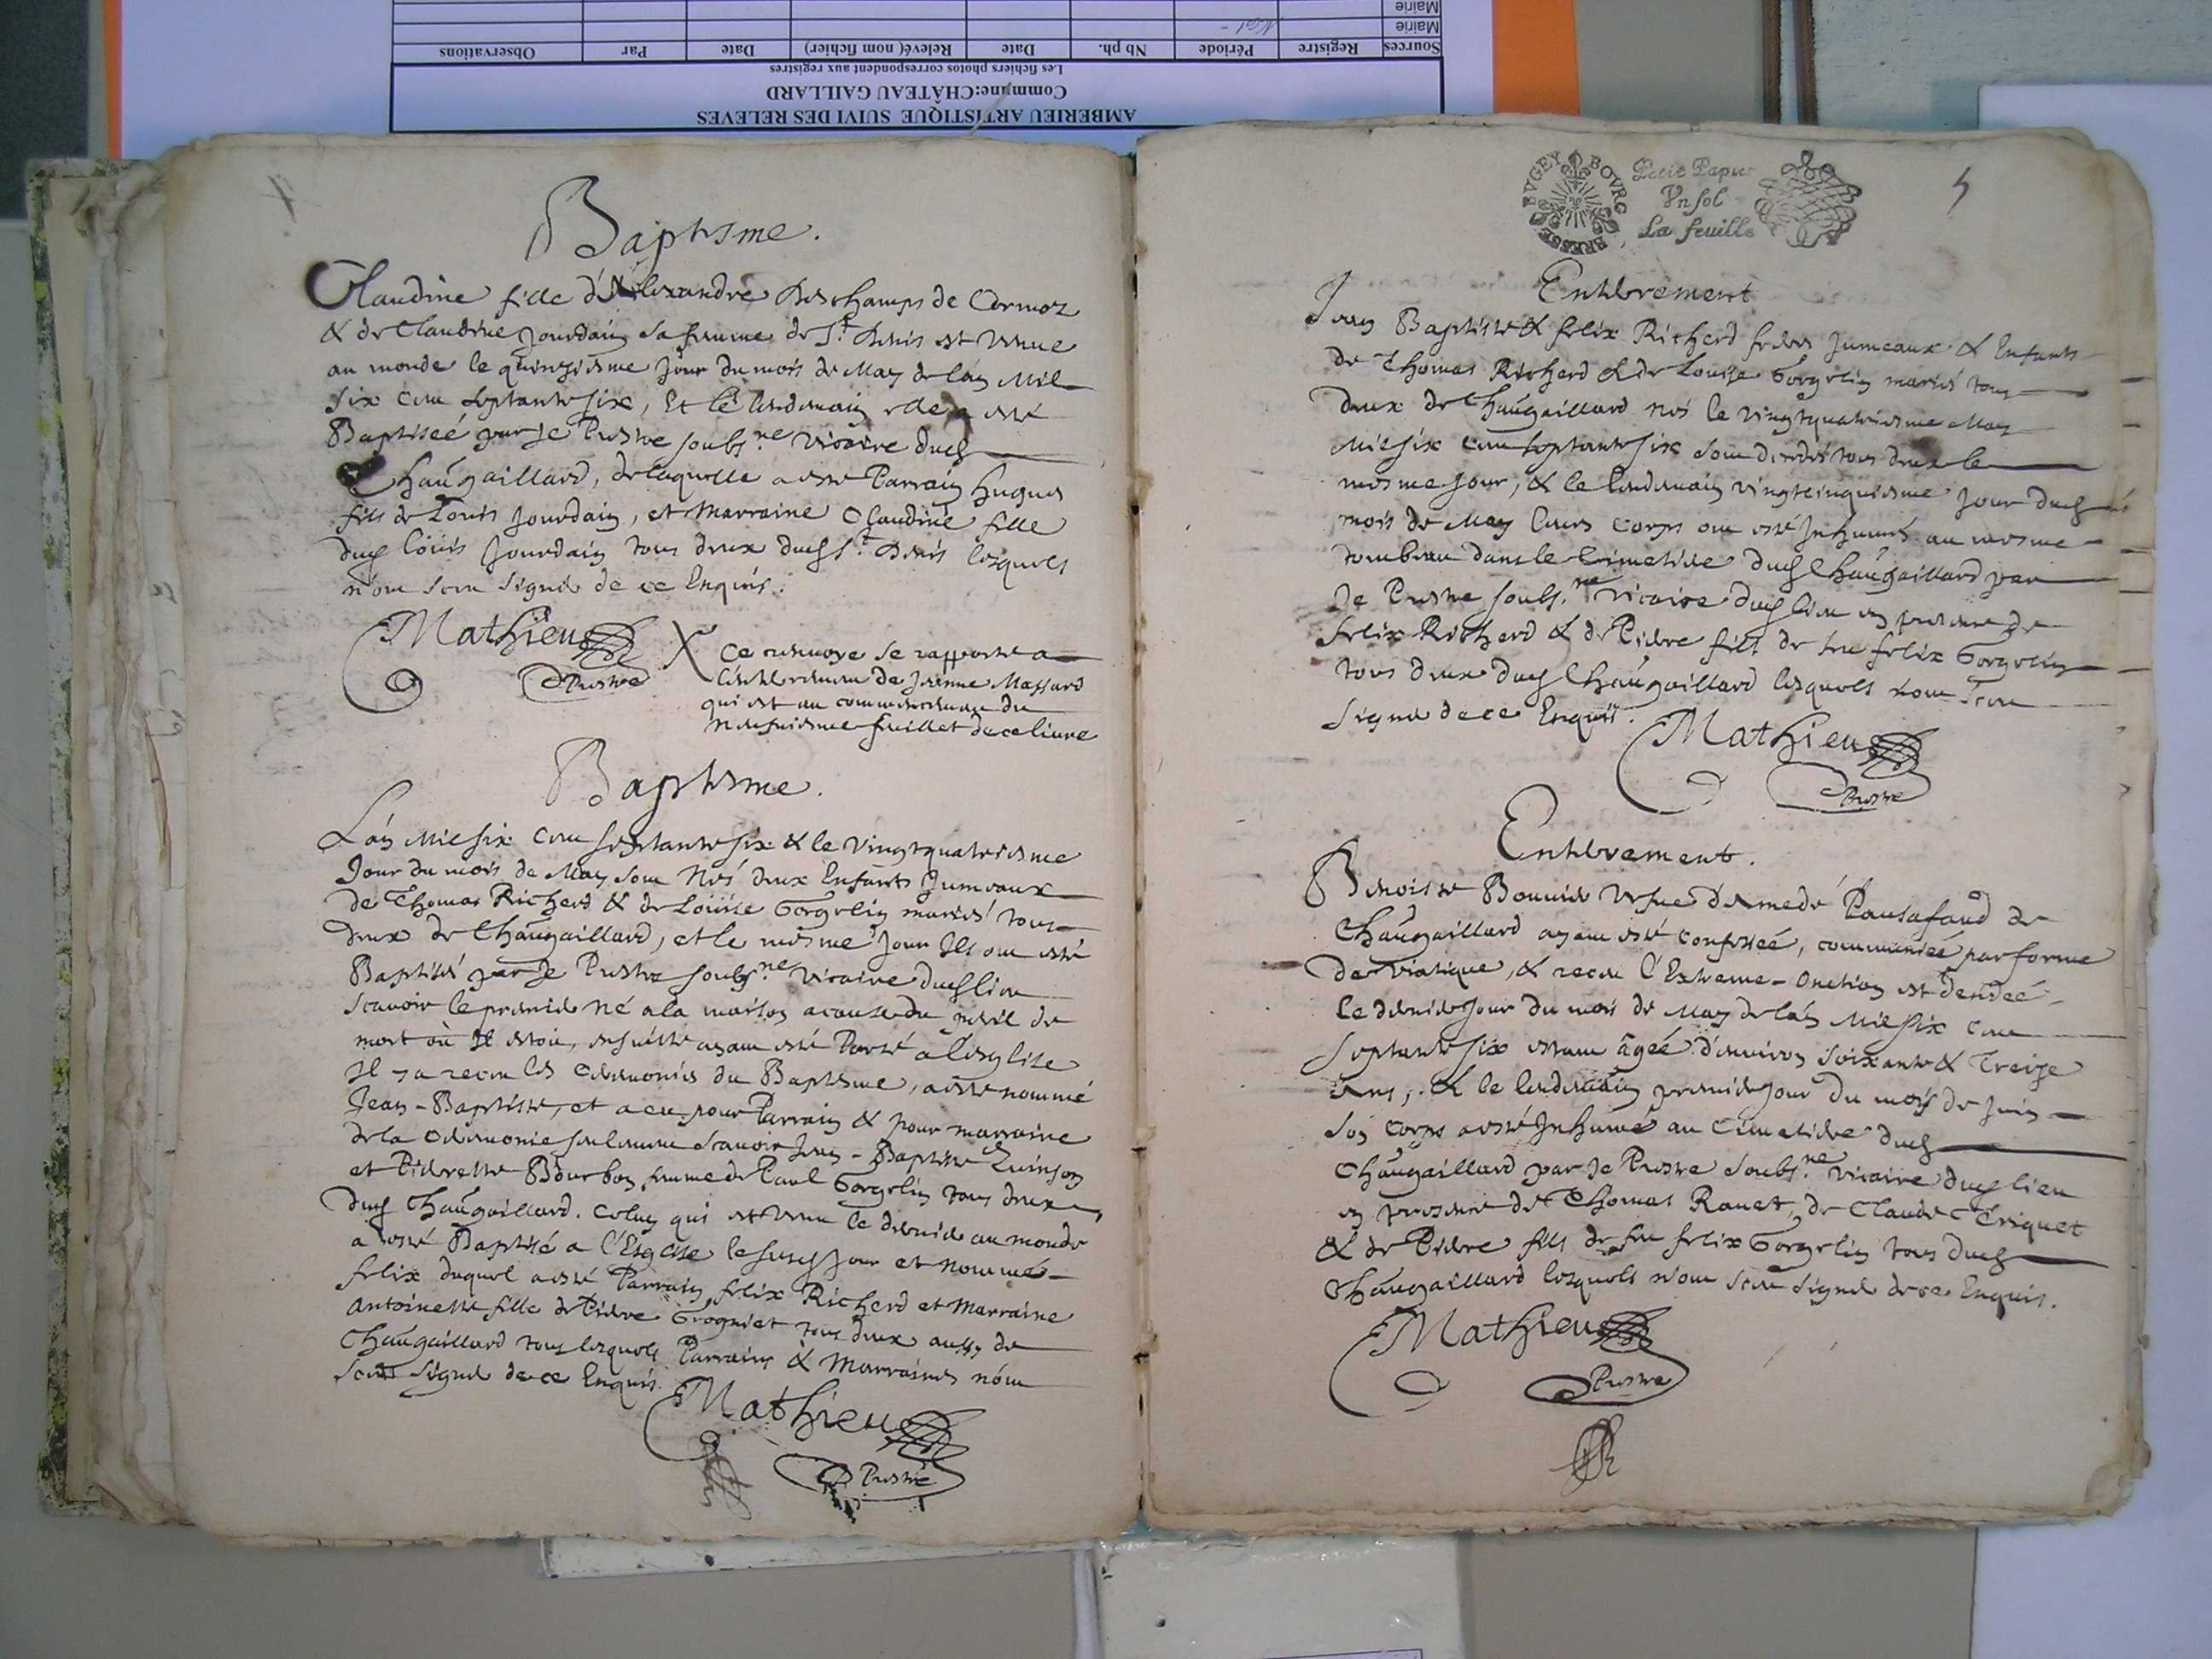 AMBERIEU ARTISTIQUE SUIVI DES RELEVES
Commune:CHÂTEAU GAILLARD
Les fichiers photos correspondent aux registres
Sources Registre Période Nb ph. Date Relevé( nom fichier) Date Par Observations
Mairie
Mairie
Baptesme.
Claudine fille d'Alexandre Deschamps de Cormoz
& de Claudine Jourdain sa femme de St Denis est venue
au monde le quinziesme Jour du mois de May de l'an Mil
six cent septante six, Et le lendemain elle a esté
Baptiseé par Je Prestre soubs.ne Vicaire dud
Chaûgaillard, de laquelle a esté Parrain Hugues
fils de Louis Jourdain, et Marraine Claudine fille
dud Loüis Jourdain tous deux dud St Denis lesquels
n'ont sceu signer de ce Enquis.
Mathieu
Prestre
X Ce renvoye se rapporte a
l'enterrement de Jeanne Massard
qui est au commencement du
neufviesme feuillet de ce livre
Baptesme.
L'an Mil six cent septante six & le vingtquatriesme
Jour du mois de May sont Nés deux Enfants Jumeaux
de Thomas Richerd & de Loüise Gorgelin mariés tous
deux de Chaûgaillard, et le mesme Jour Ils ont esté
Baptisés par Je Prestre soubs.ne Vicaire dud lieu
scavoir le premier né a la maison a cause du peril de
mort où Il estoit, ensuitte ayant esté Porté a l'esglise
Il y a receu les ceremonies du Baptesme, a esté nommé
Jean-Baptiste, et a eu pour Parrain & pour marraine
de la ceremonie seulement scavoir Jean-Baptiste Quinson
et Pierrette Bourbon femme de Paul Gorgelin tous deux
dud Chaûgaillard. Celuy qui est venu le dernier au monde
a esté Baptisé a l'Esglise le susd Jour et nommé
felix duquel a esté Parrain felix Richerd et Marraine
Antoinette fille de Pierre Grogniet tous deux aussy de
Chaûgaillard tous lesquels Parrains & Marraines n'ont
sceu signer de ce Enquis.
Mathieu
Prestre
BVGEY BOVRG BRESSE
Petit Papier
Vn sol
La feuille
5
Enterrement
Jean Baptiste & felix Richerd freres Jumeaux & Enfants
de Thomas Richerd & de Louise Gorgelin mariés tous
deux de Chaûgaillard nés le vingtquatriesme May
Mil six cent septante six sont decedés tous deux le
mesme Jour, & le lendemain vingtcinquiesme Jour dud
mois de May leurs corps ont esté Inhumés au mesme
tombeau dans le Cimetiere dud Chaûgaillard par
Je Prestre soubs.ne Vicaire dud lieu en presence de
felix Richerd & de Pierre fils de feu felix Gorgelin
tous deux dud Chaûgaillard lesquels n'ont sceu
signer de ce Enquis.
Mathieu
Prestre
Enterrement.
Benoiste Bonnier vefue d'Amedé Pansafaud de
Chaûgaillard ayant esté confesseé, communieé par forme
de viatique, & receu l'Extreme-Onction est decedeé
le dernier Jour du mois de May de l'an Mil six cent
septante six estant âgeé d'environ soixante & Treize
ans, & le lendemain premier Jour du mois de Juin
son corps a esté Inhumé au Cimetiere dud
Chaûgaillard par Je Prestre soubs.ne Vicaire dud lieu
en presence de Thomas Ravet, de Claude Criquet
& de Pierre fils de feu felix Gorgelin tous dud
Chaûgaillard lesquels n'ont sceu signer de ce Enquis.
Mathieu
Prestre